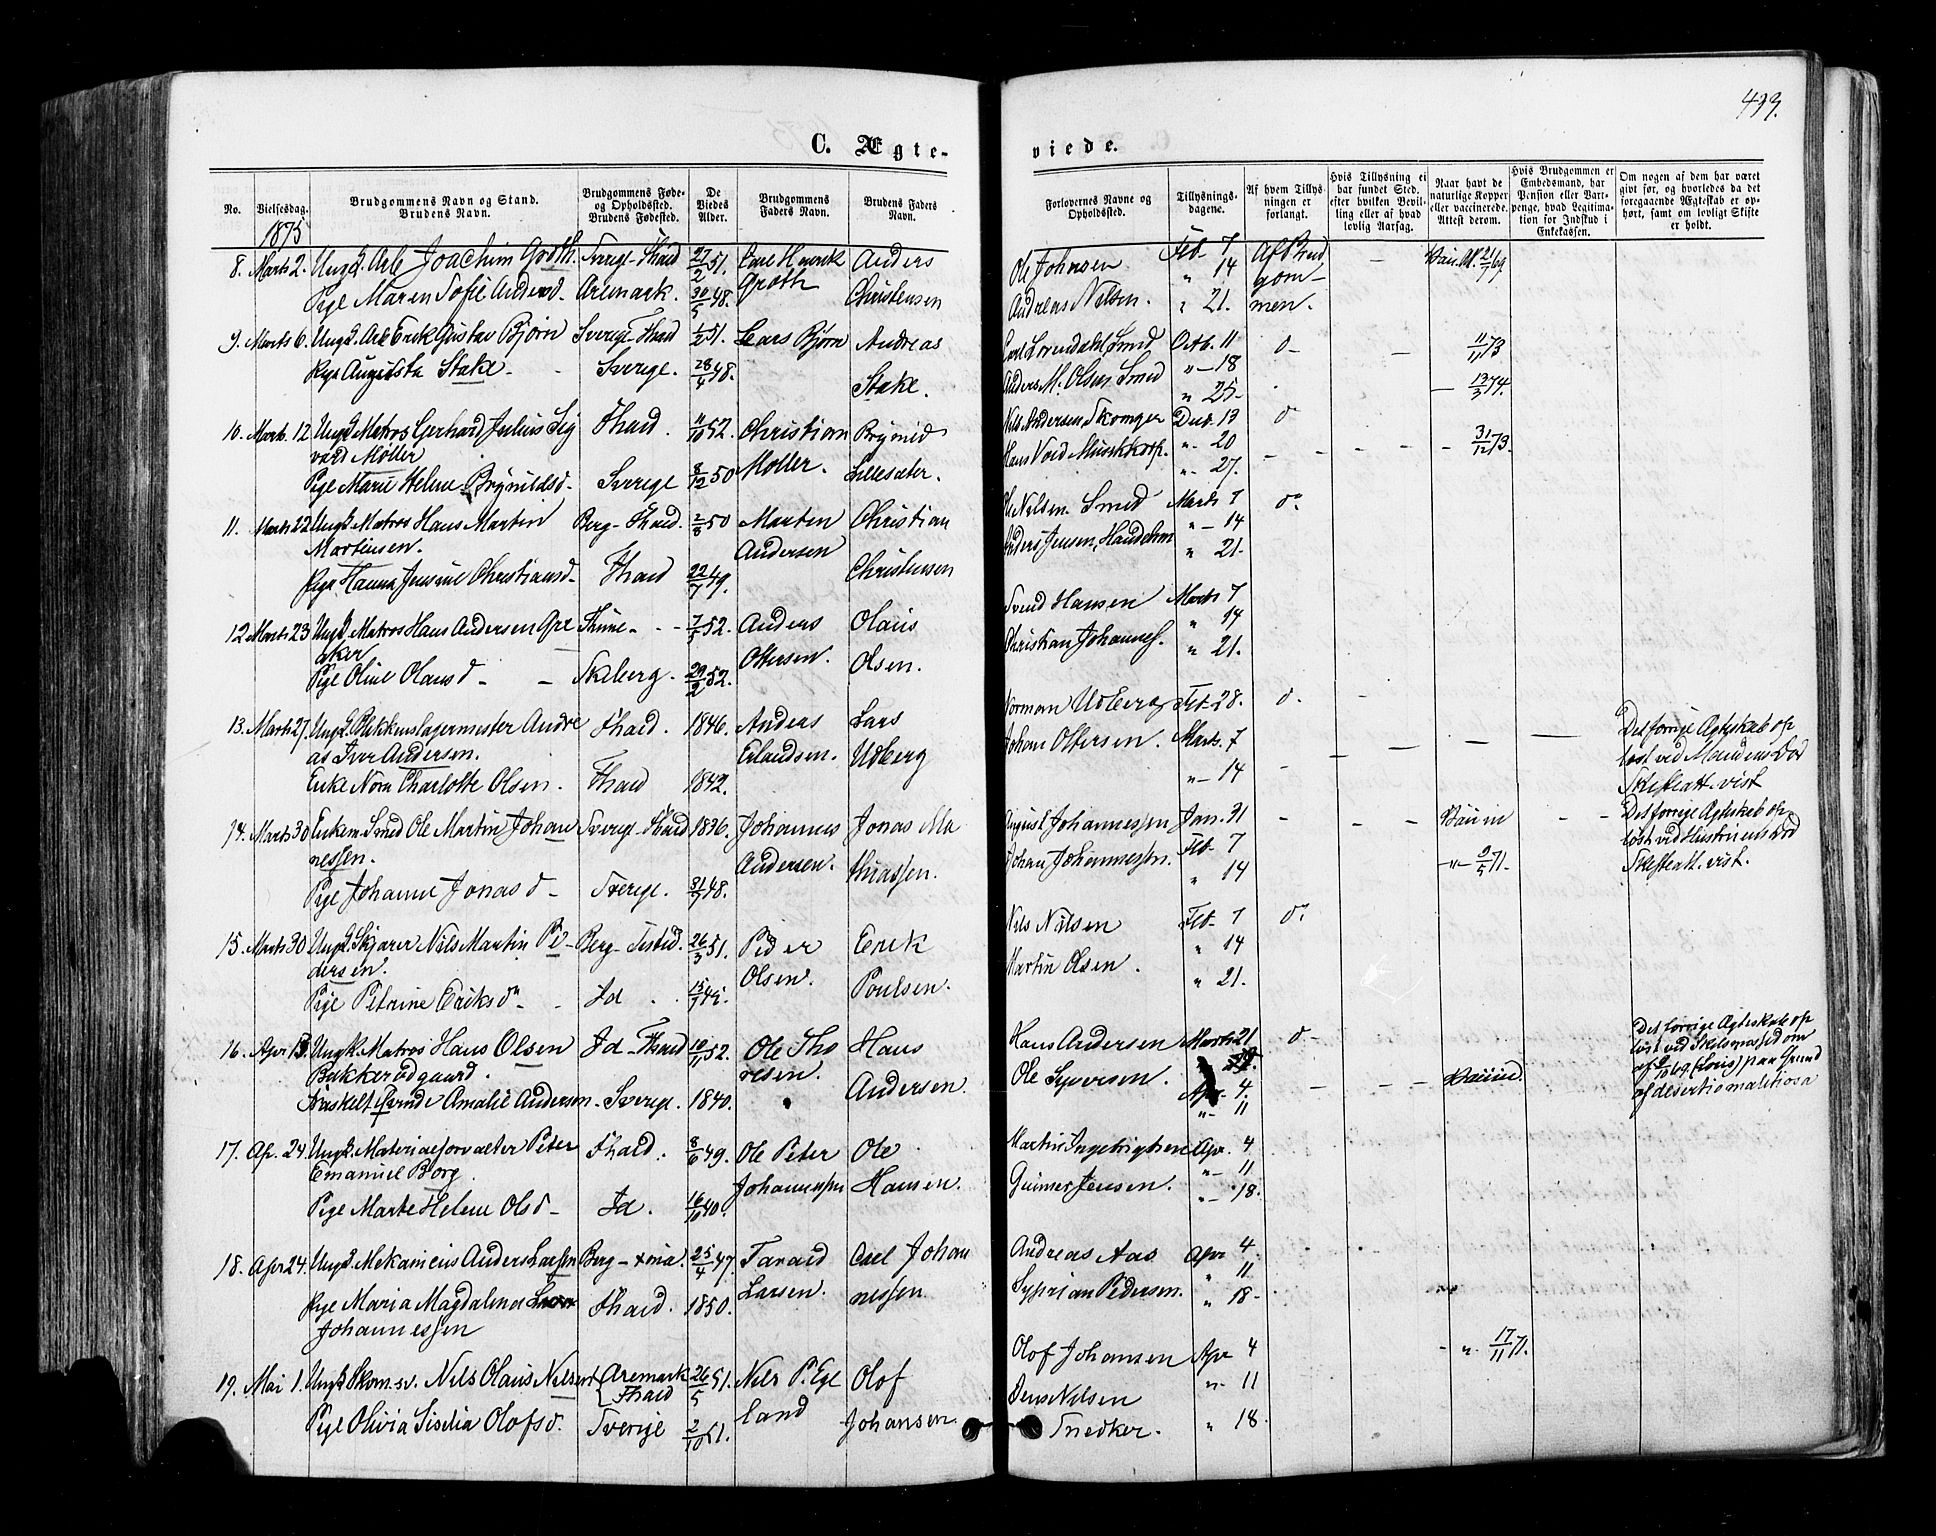 493.
C. Ægte-
viede.
No.
Vielsesdag.
Brudgommens Navn og Stand.
Brudens Navn.
Brudgommens Føde-
og Opholdsted.
Brudens Fødested.
De
Viedes
Alder.
Brudgommens
Faders Navn.
Brudens Faders
Navn.
Forlovernes Navne og
Opholdssted.
Tillysnings-
dagene.
Af hvem Tillys-
ningen er
forlangt.
Hvis Tillysning ei
har fundet Sted,
efter hvilken Bevil-
ling eller af hvad
lovlig Aarsag.
Naar havt de
naturlige Kopper
eller vaccinerede.
Attest derom.
Hvis Brudgommen er
Embedsmand, har
Pension eller Var-
penge, hvad Legitima-
tion for Indskud i
Enkekassen.
Om nogen af dem har været
givt før, og hvorledes da det
foregaaende Ægteskab er op-
hørt, samt om lovligt Skifte
er holdt.
1875
8. Marts 2. Ungk. Arb. Joachim Groth. Sverge-Fhald 27/2 51. Carl Henrik Anders
Pige Maren Sofie Andersd. Aremark. 30/5 48. Groth Christensen
Ole Johnsen Feb. 7 Af Brud
" 14 gom-
Andreas Nilsen. " 21. men.
9. Marts 6. Ungk. Arb. Erik Gustav Bjørn Sverige-Fhald 1/2 51. Lars Bjørn Andreas
Pige Augusta Stake - Sverige. 28/4 48. Stake.
Octb. 11 11/11 73
Anders M. Olsen Smed "-18
" 25- - 13/3 74.
10. Marts 12 Ungk. Matros Gerhard Julius Sig Fhald. 11/10 52. Christian Brynild
vard Møller
Pige Marie Helene Brynildsd. Sverige 8/12 50 Møller. Lillesæter.
Nils Andersen Skomager Decb. 13
Hans Void Musikkorp. "- 20 - 31/12 73.
"- 27.
11. Marts 22 Ungk. Matros Hans Martin Berg-Fhald. 2/8 50 Marten Christian
Martinsen. Andersen
Pige Hanna Jensine Christiansd. Fhald 22/7 49. Christensen
Ole Nilsen Smed Marts 7
"-14
Anders Jensen, " 21.
12 Marts 23 Ungk. Matros Hans Andersen Fhune - - 7/3 52. Anders Olaus
aker
Pige Oline Olausd - - Skiberg. 29/2 52. Ottersen. Olsen.
Svend Hansen Marts 7
" 14
Christian Johannes. " 21.
13. Marts 27. Ungk. Blikkenslagermester Andre Fhald. 1846. Anders Lars
as Iver Andersen. Erlandsen. Udberg
Enke Nora Charlotte Olsen. Fhald 1842.
Norman Udberg Feb. 28.
Johan Ottersen. Marts. 7
"-14
Det forrige Ægteskab op
løst ved Mandens Død
Skifteatt. vist
14. Marts 30 Enkem. Smed Ole Martin Johan Sverige-Fhald 1836. Johannes Jonas Ma
nessen. Andersen. thiassen.
Pige Johanne Jonasd - Sverige. 31/7 48.
August Johannessen Jan. 31 - - - Vaccin - -
Johan Johannessen. Feb. 7
" 14 -"- 9/5 71.
Det forrige Ægteskab op
løst ved Hustruens Død
Skifteatt. vist.
15. Marts 30 Ungk. Skjærer Nils Martin Pe- Berg-Tistd. 26/3 51. Peder Erik
dersen. Olsen. Poulsen.
Pige Petrine Eriksd. - Id . .
Nils Nilsen Feb. 7
" 14
Martin Olsen. " 21.
16. Apr 13. Ungk. Matros Hans Olsen Id-Fhald 10/11 52. Ole Tho Hans
Bakkerødgaard. resen. Andersen.
Fraskelt Qvinde Amalie Andersen. Sverige. 1840.
Hans Andersen Marts 21
Ole Syversen. Apr. 4.
"- 11
Vaccine.
Det forrige Ægteskab op
løst ved Skilsmissedom
af 9/10 69 (Lovis) paa Grund
af desertio malitiosa
17. Ap. 24. Ungk. Materialforvalter Peter Fhald. 8/6 49. Ole Peter Ole
Emanuel Borg Johannessen Hansen.
Pige Marte Helene Olsd - Id. 16/10 40.
Martin Ingebrigtsen Apr. 4
"- 11
Gunner Jensen. "-18.
18. Apr 24. Ungk. Mekanicus Anders Larsen Berg-Xnia. 25/4 47. Tarald Carl Johan
Pige Maria Magdalena Fhald. 1850. Larsen. nessen.
Johannessen
Andreas Aas Apr 4
" 11
Syprian Pedersen. " 18-
19. Mai 1. Ungk. Skom.sv. Nils Olaus Nilsen Aremark 26/5 51. Nils P. Ege Olof
Fhald
Pige Olivia Sisilia Olofsd. Sverige 2/10 51. land Johansen
Olof Johansen Apr 4 - ". 17/11 71.
"- 11
Nilsen
Snedker. " 18.